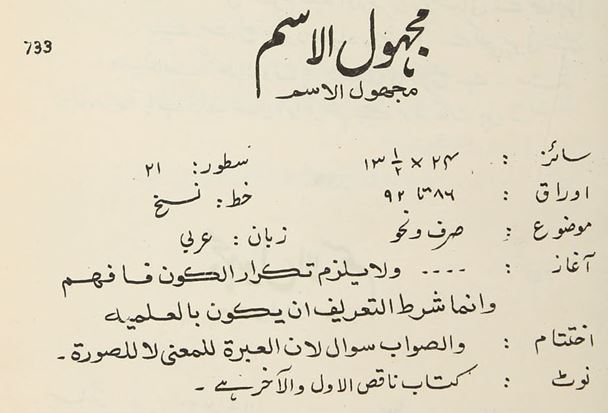 733
مجہول الاسم
مجھول الاسم
سائز : ۲۴ × ۱۳ ۱/۲ سطور: ۲۱
اوراق : ۸۶ تا ۹۲ خط: نسخ
موضوع : صرف ونحو زبان : عربی
آغاز : .... ولايلزم تكرار الكون فافهم
وانما شرط التعريف ان يكون بالعلميه
اختتام : والصواب سوال لان العبرة للمعنى لا للصورة ۔
نوٹ : کتاب ناقص الاول والآخر ہے ۔